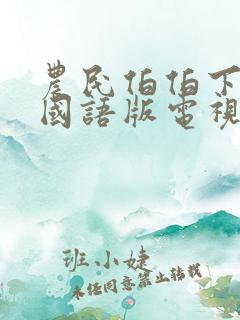 農民伯伯下
國語版電視
班小婕
未經同意禁止轉載